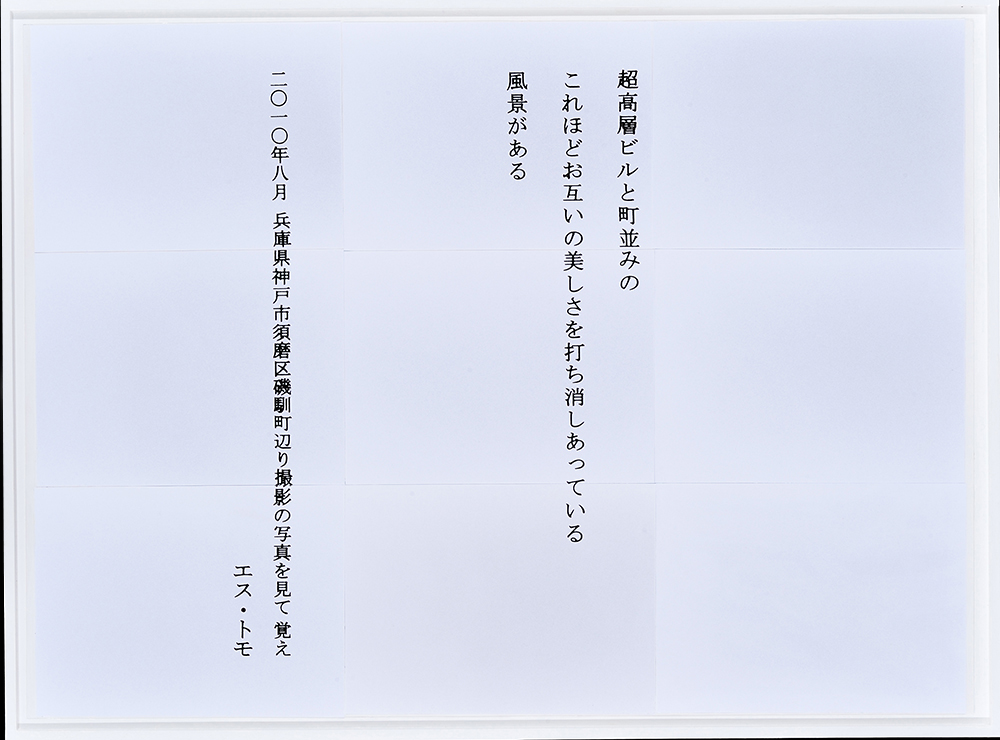 超高層ビルと町並みの
これほどお互いの美しさを打ち消しあっている
風景がある
二〇一〇年八月 兵庫県神戸市須磨区磯馴町辺り撮影の写真を見て 覚え
エス・トモ